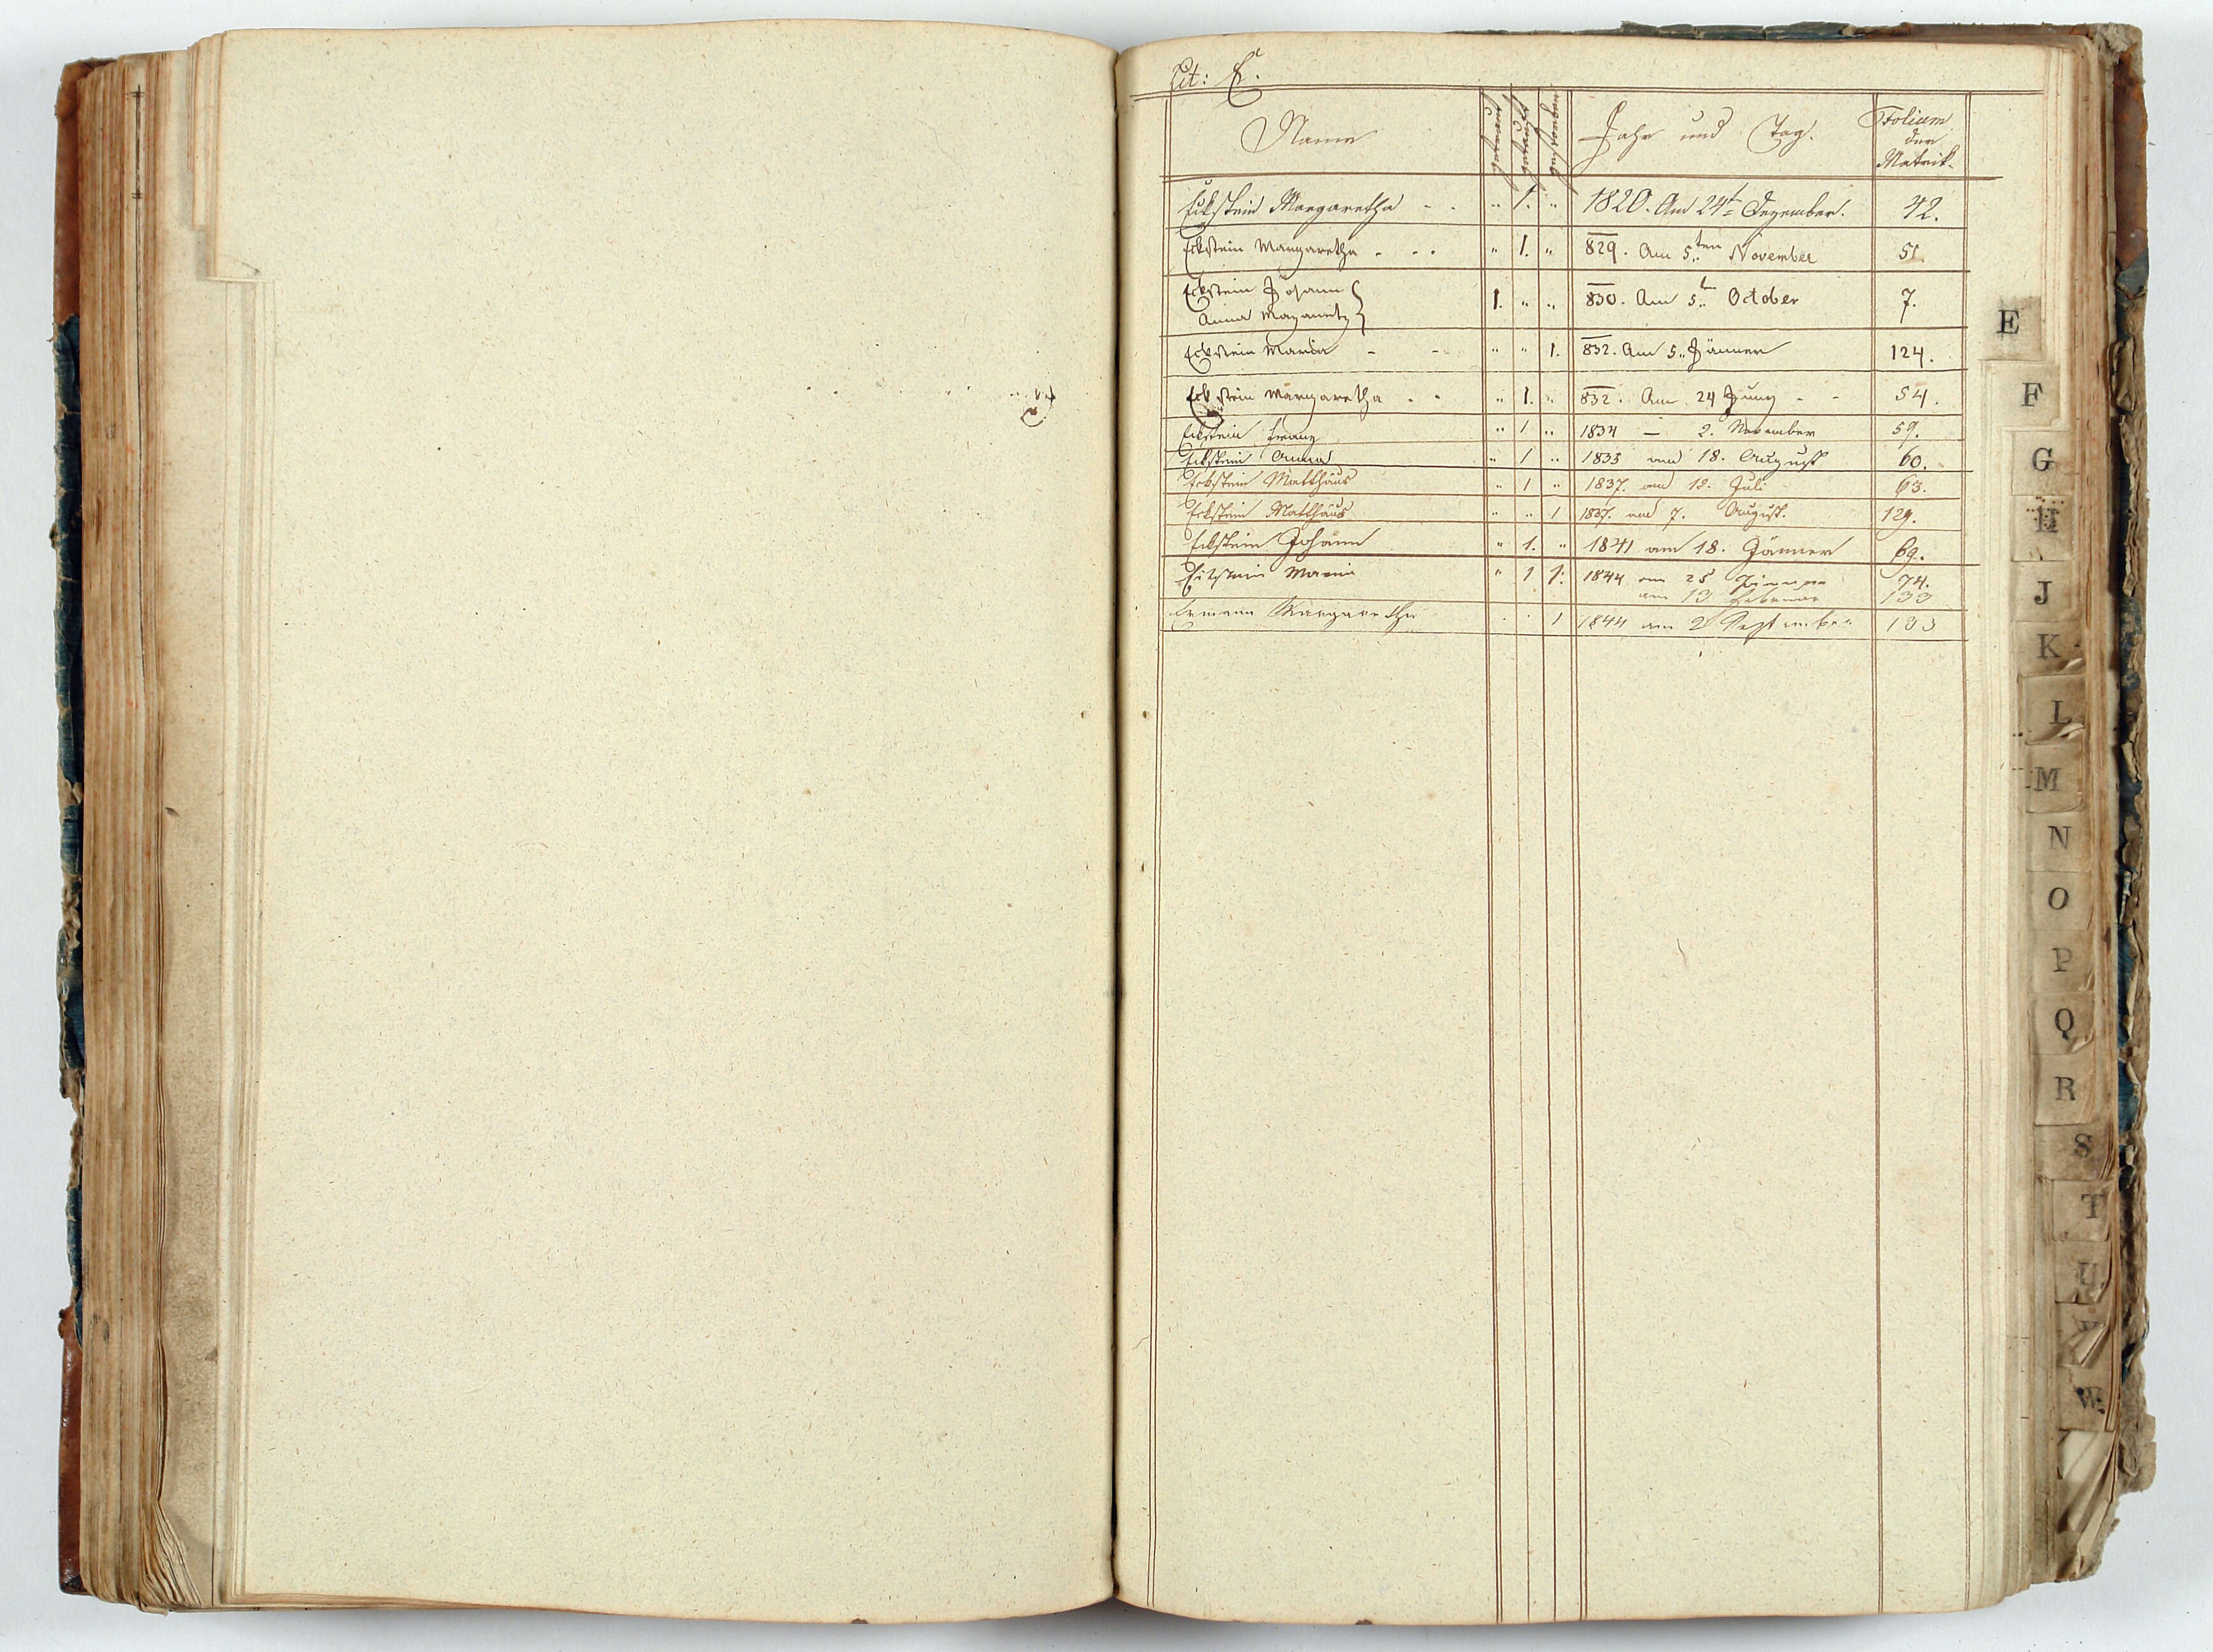 Lit: E.
Name getraut getauft gestorben Jahr und Tag. Folium
der
Matrik.
Eckstein Margaretha - - " 1. " 1820. Am 24t Dezember. 42.
Eckstein Margaretha - - - " 1. " 829. Am 5ten November 51
Eckstein Johann 1. " " 830. Am 5t October 7.
Anna
Eckstein Maria - - " " 1. 832. Am 5. Jänner 124.
Eckstein Margaretha - - " 1. " 832. Am 24 Juny - - 54.
Eckstein Franz " 1 " 1834 — 2. November 59.
Eckstein Anna " 1 " 1835 am 18. August 60.
Eckstein Matthäus " 1 " 1837. am 12. Juli 63.
Eckstein Matthäus " " 1 1837. am 7. August. 129.
Eckstein Johann " 1. " 1841 am 18. Jänner 69.
Eckstein Maria " 1 1. 1844 am 25 Jänner 74.
am 13 Februar 133
Margaretha . . 1 1844 am 2 September 133
E
F
G
H
J
K
L
M
N
O
P
Q
R
S
T
U
V
W.